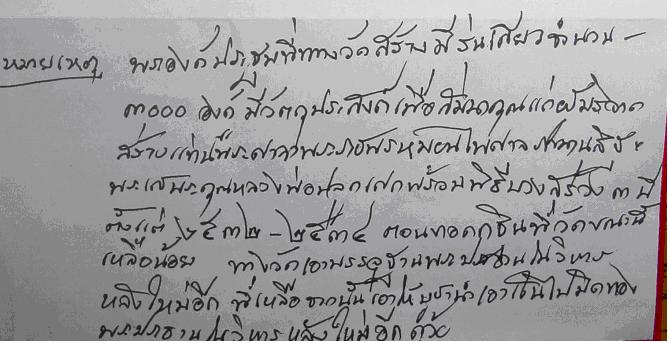 หมายเหตุ พระองค์ประชุมที่ทางวัดสร้างมีรุ่นเดียวจำนวน -
๓๐๐๐ องค์ มีวัตถุประสงค์เพื่อสมนาคุณแก่ผู้บริจาค
สร้างแท่นพระศาลา
พระเดชพระคุณหลวงพ่อปลุกเสกพร้อมพิธีบวงสรวง ๓ ปี
ตั้งแต่ ๒๕๓๒ - ๒๕๓๔ ตอนทอดกฐินที่วัดขณะนี้
เหลือน้อย ทางวัดเอาบรรจุฐานพระประธานในวิหาร
หลังใหม่อีก ที่เหลือจากนั้นเอาให้บูชานำเอาเงินไปปิดทอง
พระประธานในวิหารหลังใหม่อีกด้วย